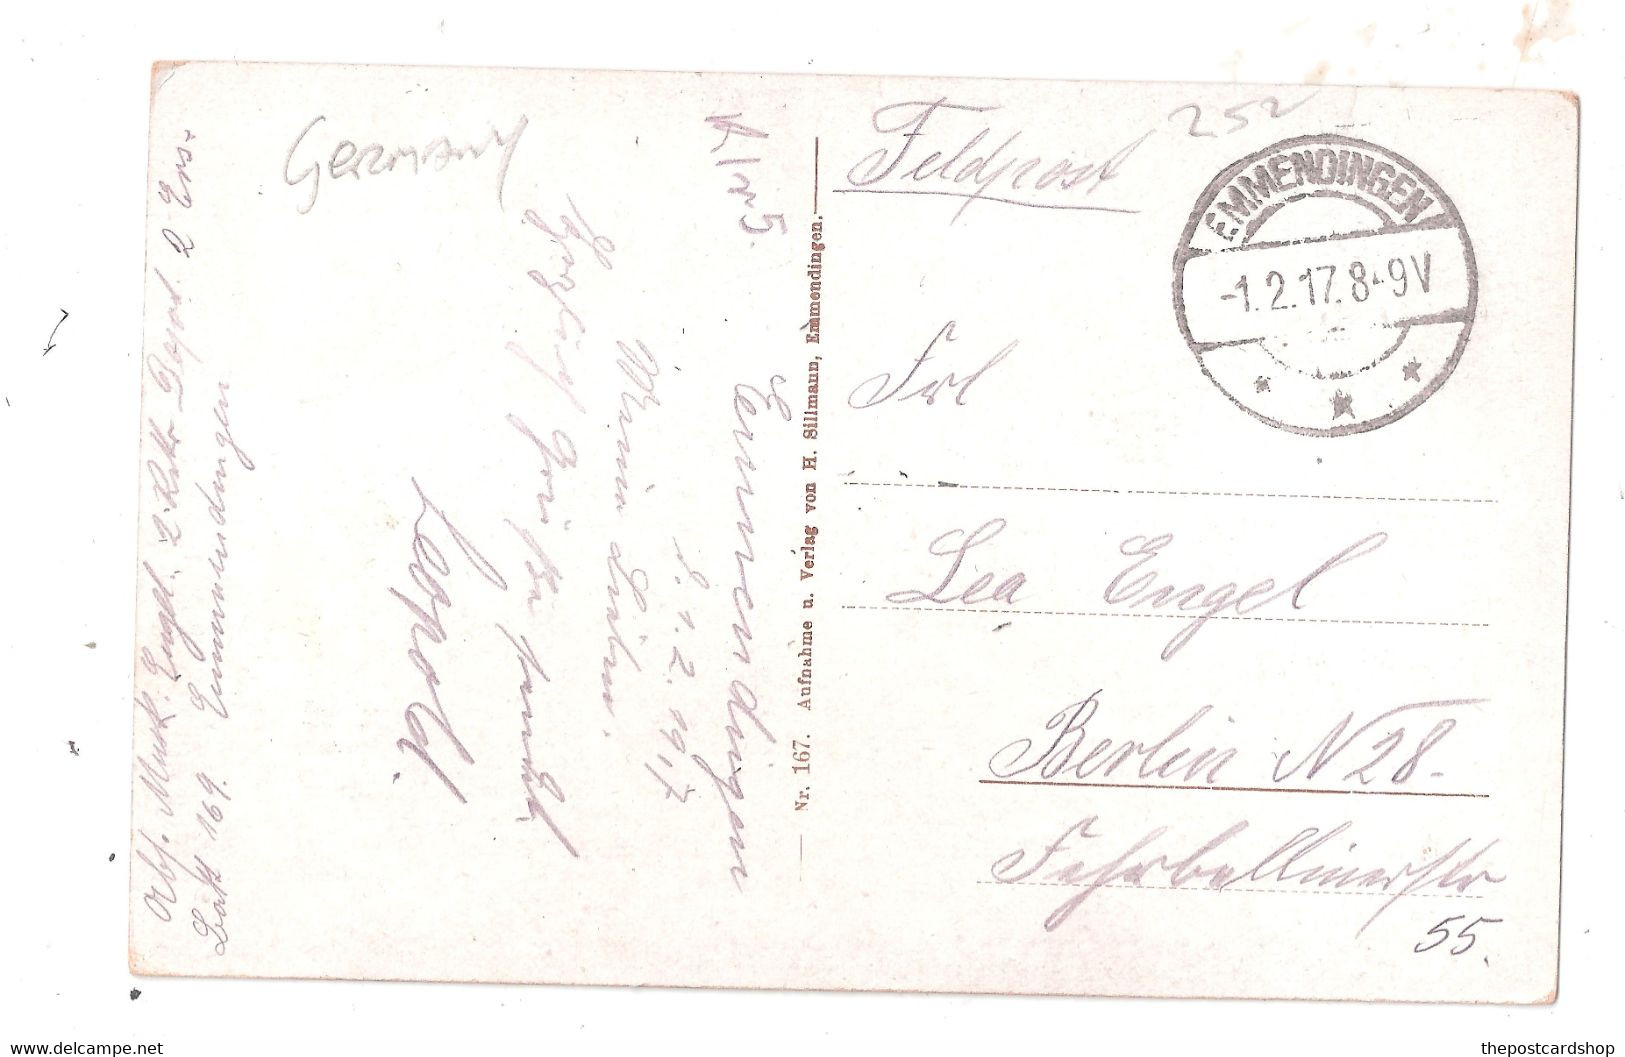 Germany
Feldpost
252
EMMENDINGEN
-1.2.17.8-9V
Frl
Lea Engel
Berlin N 28.
Fehrbellinerstr
55.
Nr. 167. Aufnahme u. Verlag von H. Sillmann, Emmendingen.
Nr 5.
Emmendingen
d. 1. 2. 1917
Meine Liebe.
Grüße
Leopold.
Abs. Musk. Engel. 2. Rekr Depot 2 Ers.
Batl 169. Emmendingen
delcampe.net
thepostcardshop